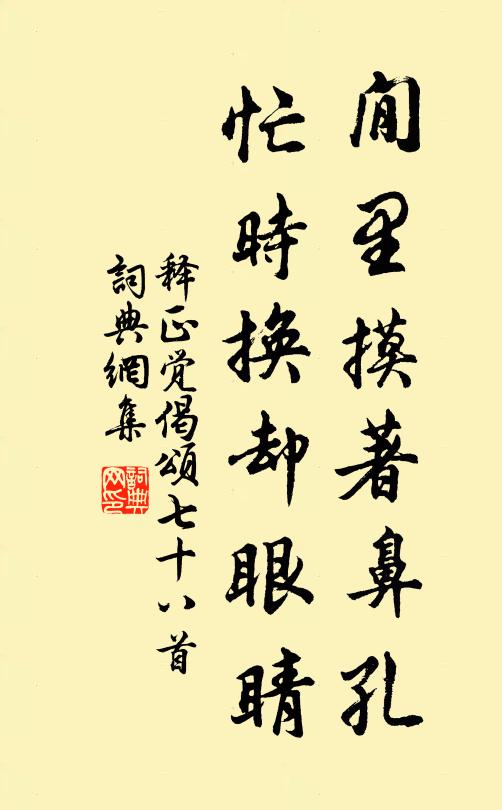 閒里摸著鼻孔
忙時換却眼睛
释正觉偈頌七十八首
詞典網集
詞典网印